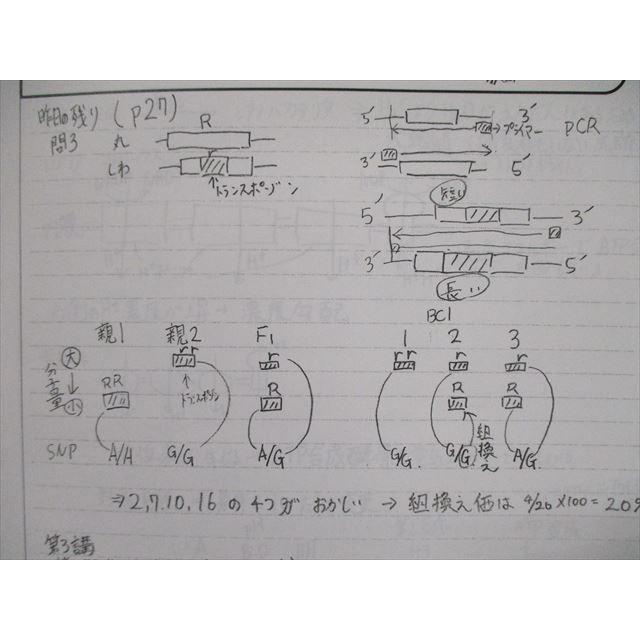 昨日の残り (p27)
問3 丸 R
しわ
トランスポーゾン
5' 3'
プライマー PCR
3' 5'
短い
5' 3'
3' 5'
長い
BC1
親1 親2 F1 1 2 3
分子量 大 → 小
rr r rr r r
RR R R R
トランスポゾン
組換え
SNP A/A G/G A/G G/G. G/G. A/G.
⇒2,7.10,16 の4つが おかしい → 組換え価は 4/20×100=20%
第3講